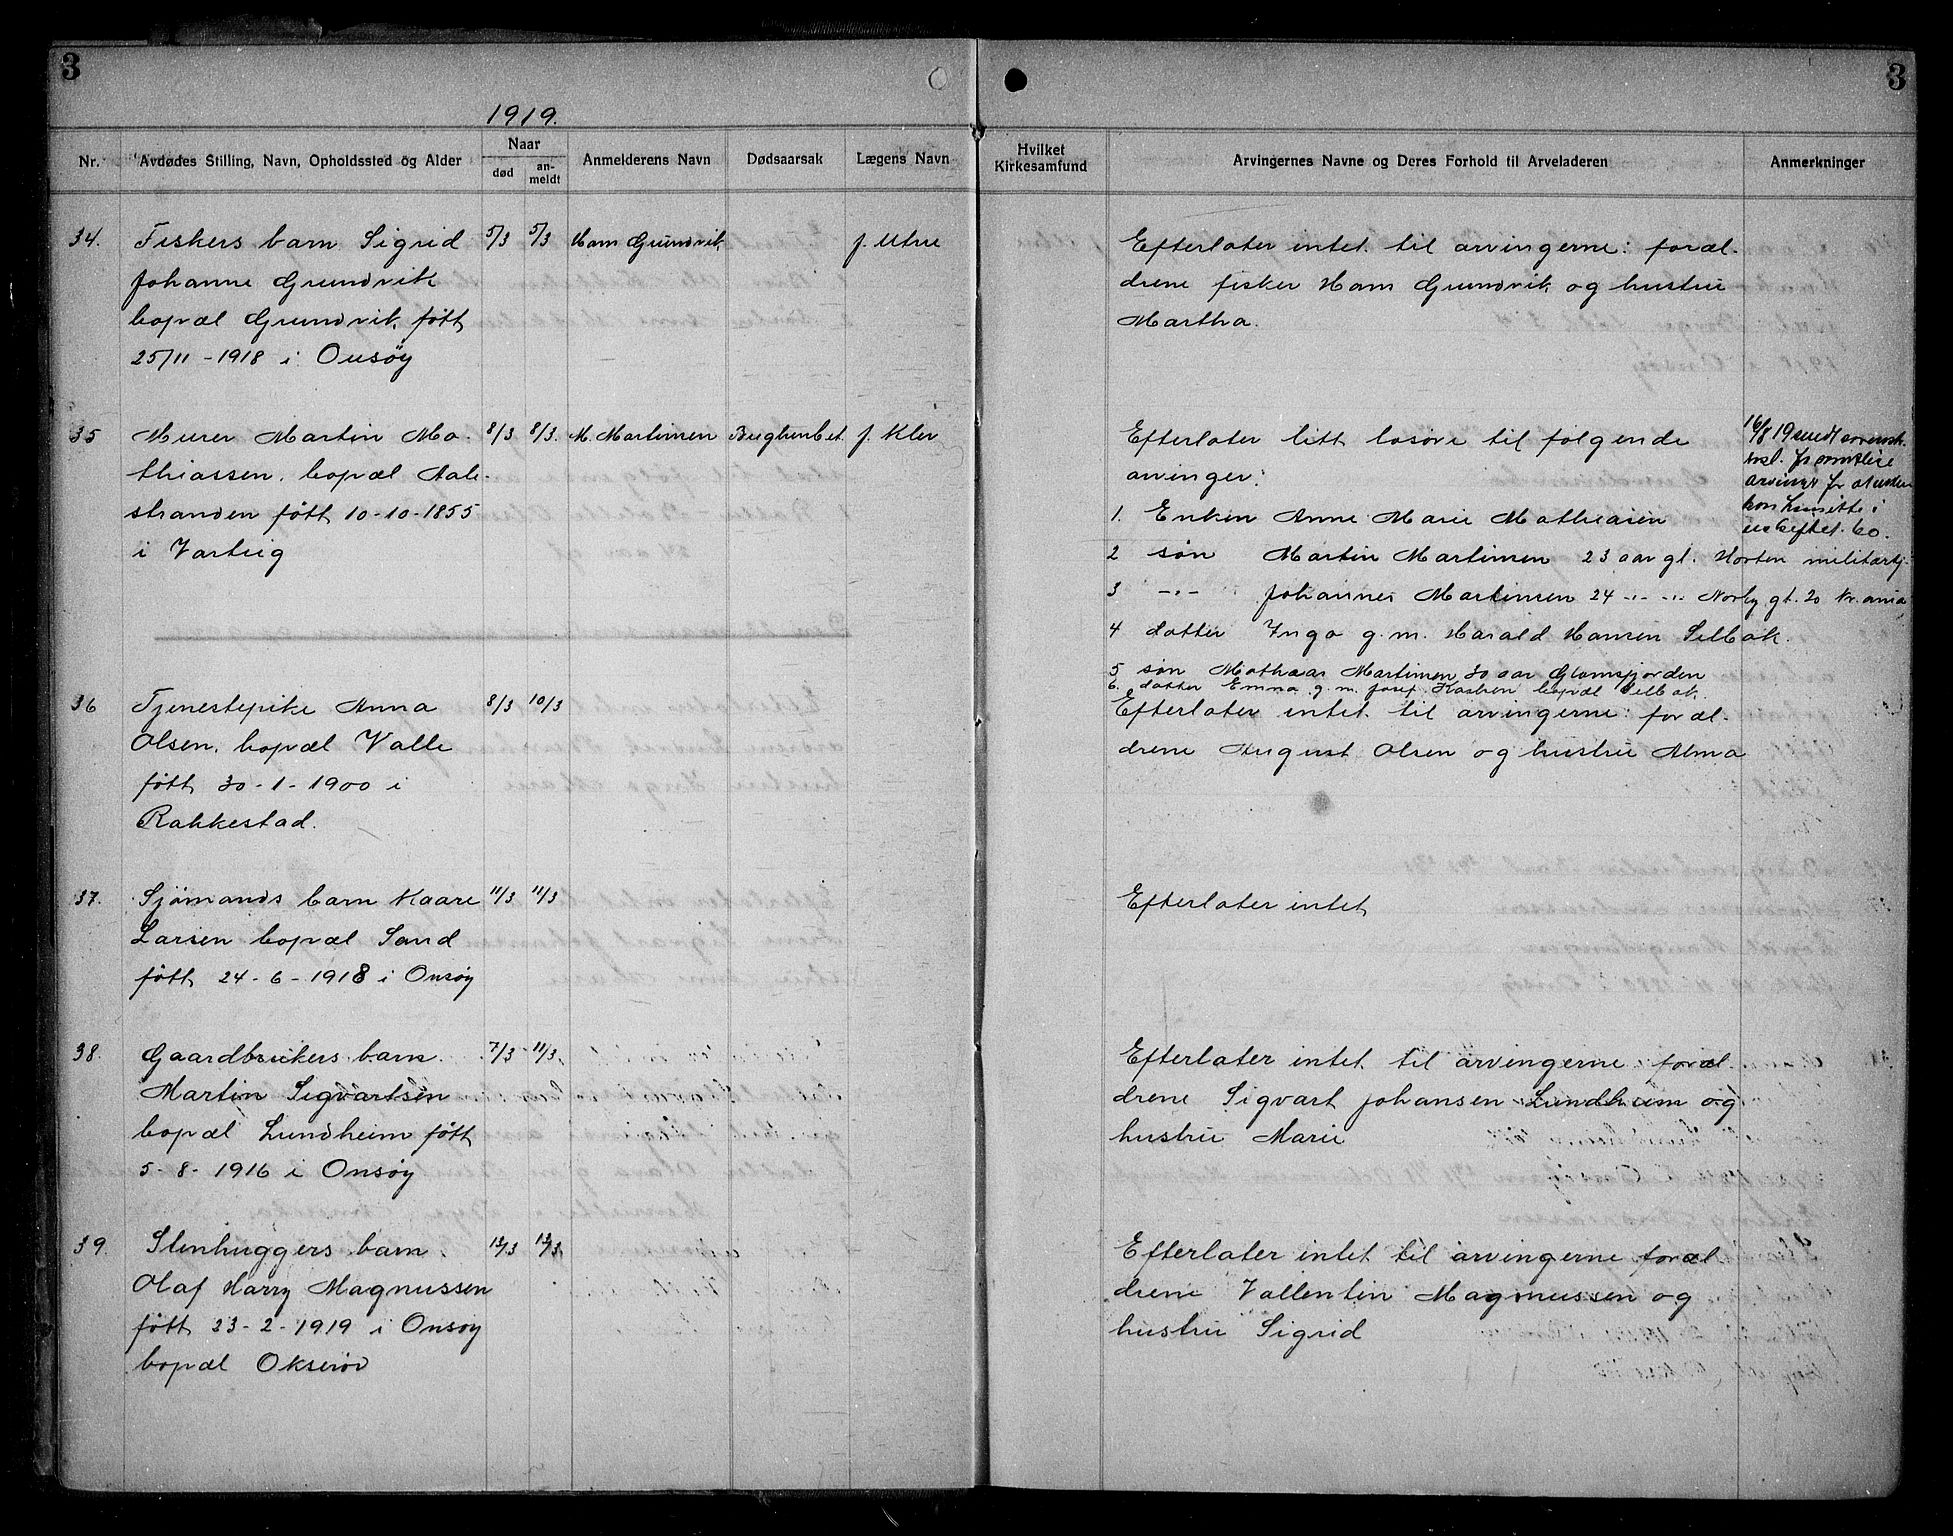 3
3
1919.
Nr.
Avdødes Stilling, Navn, Opholdssted og Alder
Naar
død
an-
meldt
Anmelderens Navn
Dødsaarsak
Lægens Navn
Hvilket
Kirkesamfund
Arvingernes Navne og Deres Forhold til Arveladeren
Anmerkninger
34. Fiskers barn Sigrid 5/3 5/3 Hans Grundvik
Johanne Grundvik
bopæl Grundvik, født
25/11 - 1918 i Onsøy
Efterlater intet til arvingerne: foræl-
drene fisker Hans Grundvik og hustru
Martha.
35 Murer Martin Ma- 8/3 8/3. M. Martinsen
thiassen, bopæl Aale-
stranden født 10-10-1855
i Varteig
Efterlater litt løsøre til følgende
arvinger:
1. Enken Anne Marie Mathiasen
2 søn Martin Martinsen 23 aar gl. Horten militærtj.
3 -"- Johannes Martinsen 24 -"- -"- Norby gt. 20 Kr.ania
4 datter Inga g.m. Harald Hansen Selbak.
5 søn Mathias Martinsen 30 aar Glomfjorden
6. datter Emma g.m. Josef bopæl Selbak.
16/8 19 sendt
arvinger fr
uskiftet bo.
36 Tjenestepike Anna 8/3 10/3
Olsen, bopæl Valle
født 30-1-1900 i
Rakkestad.
Efterlater intet til arvingerne: foræl-
drene August Olsen og hustru Alma
37. Sjømands barn Kaare 11/3 11/3
Larsen bopæl Sand
født 24-6-1918 i Onsøy
Efterlater intet
38. Gaardbrukers barn 7/3 11/3
Martin Sigvartsen
bopæl Lundheim født
5-8-1916 i Onsøy
Efterlater intet til arvingerne foræl-
drene Sigvart Johansen Lundheim og
hustru Marie
39. Stenhuggers barn 13/3 13/3
Olaf Harry Magnussen
født 23-2-1919 i Onsøy
bopæl Okserød
Efterlater intet til arvingerne foræl
drene Vallentin Magnussen og
hustru Sigrid